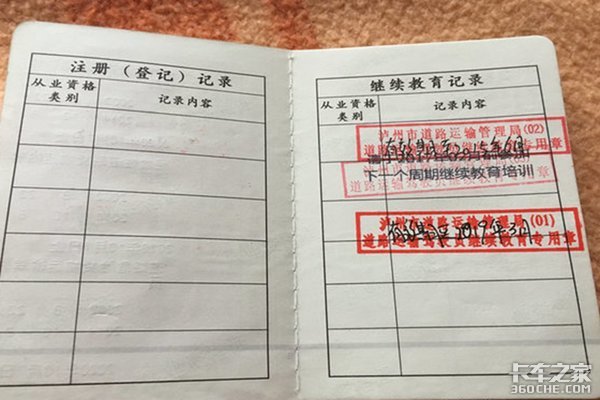 注册（登记）记录
从业资格
类别
记录内容
继续教育记录
从业资格
类别
记录内容
泸州市道路运输管理局(02)
有效期至2015年6月
下一个周期继续教育培训
道路运输驾驶员继续教育专用章
泸州市道路运输管理局(01)
有效期至2019年3月
道路运输驾驶员继续教育专用章
卡车之家
360che.com